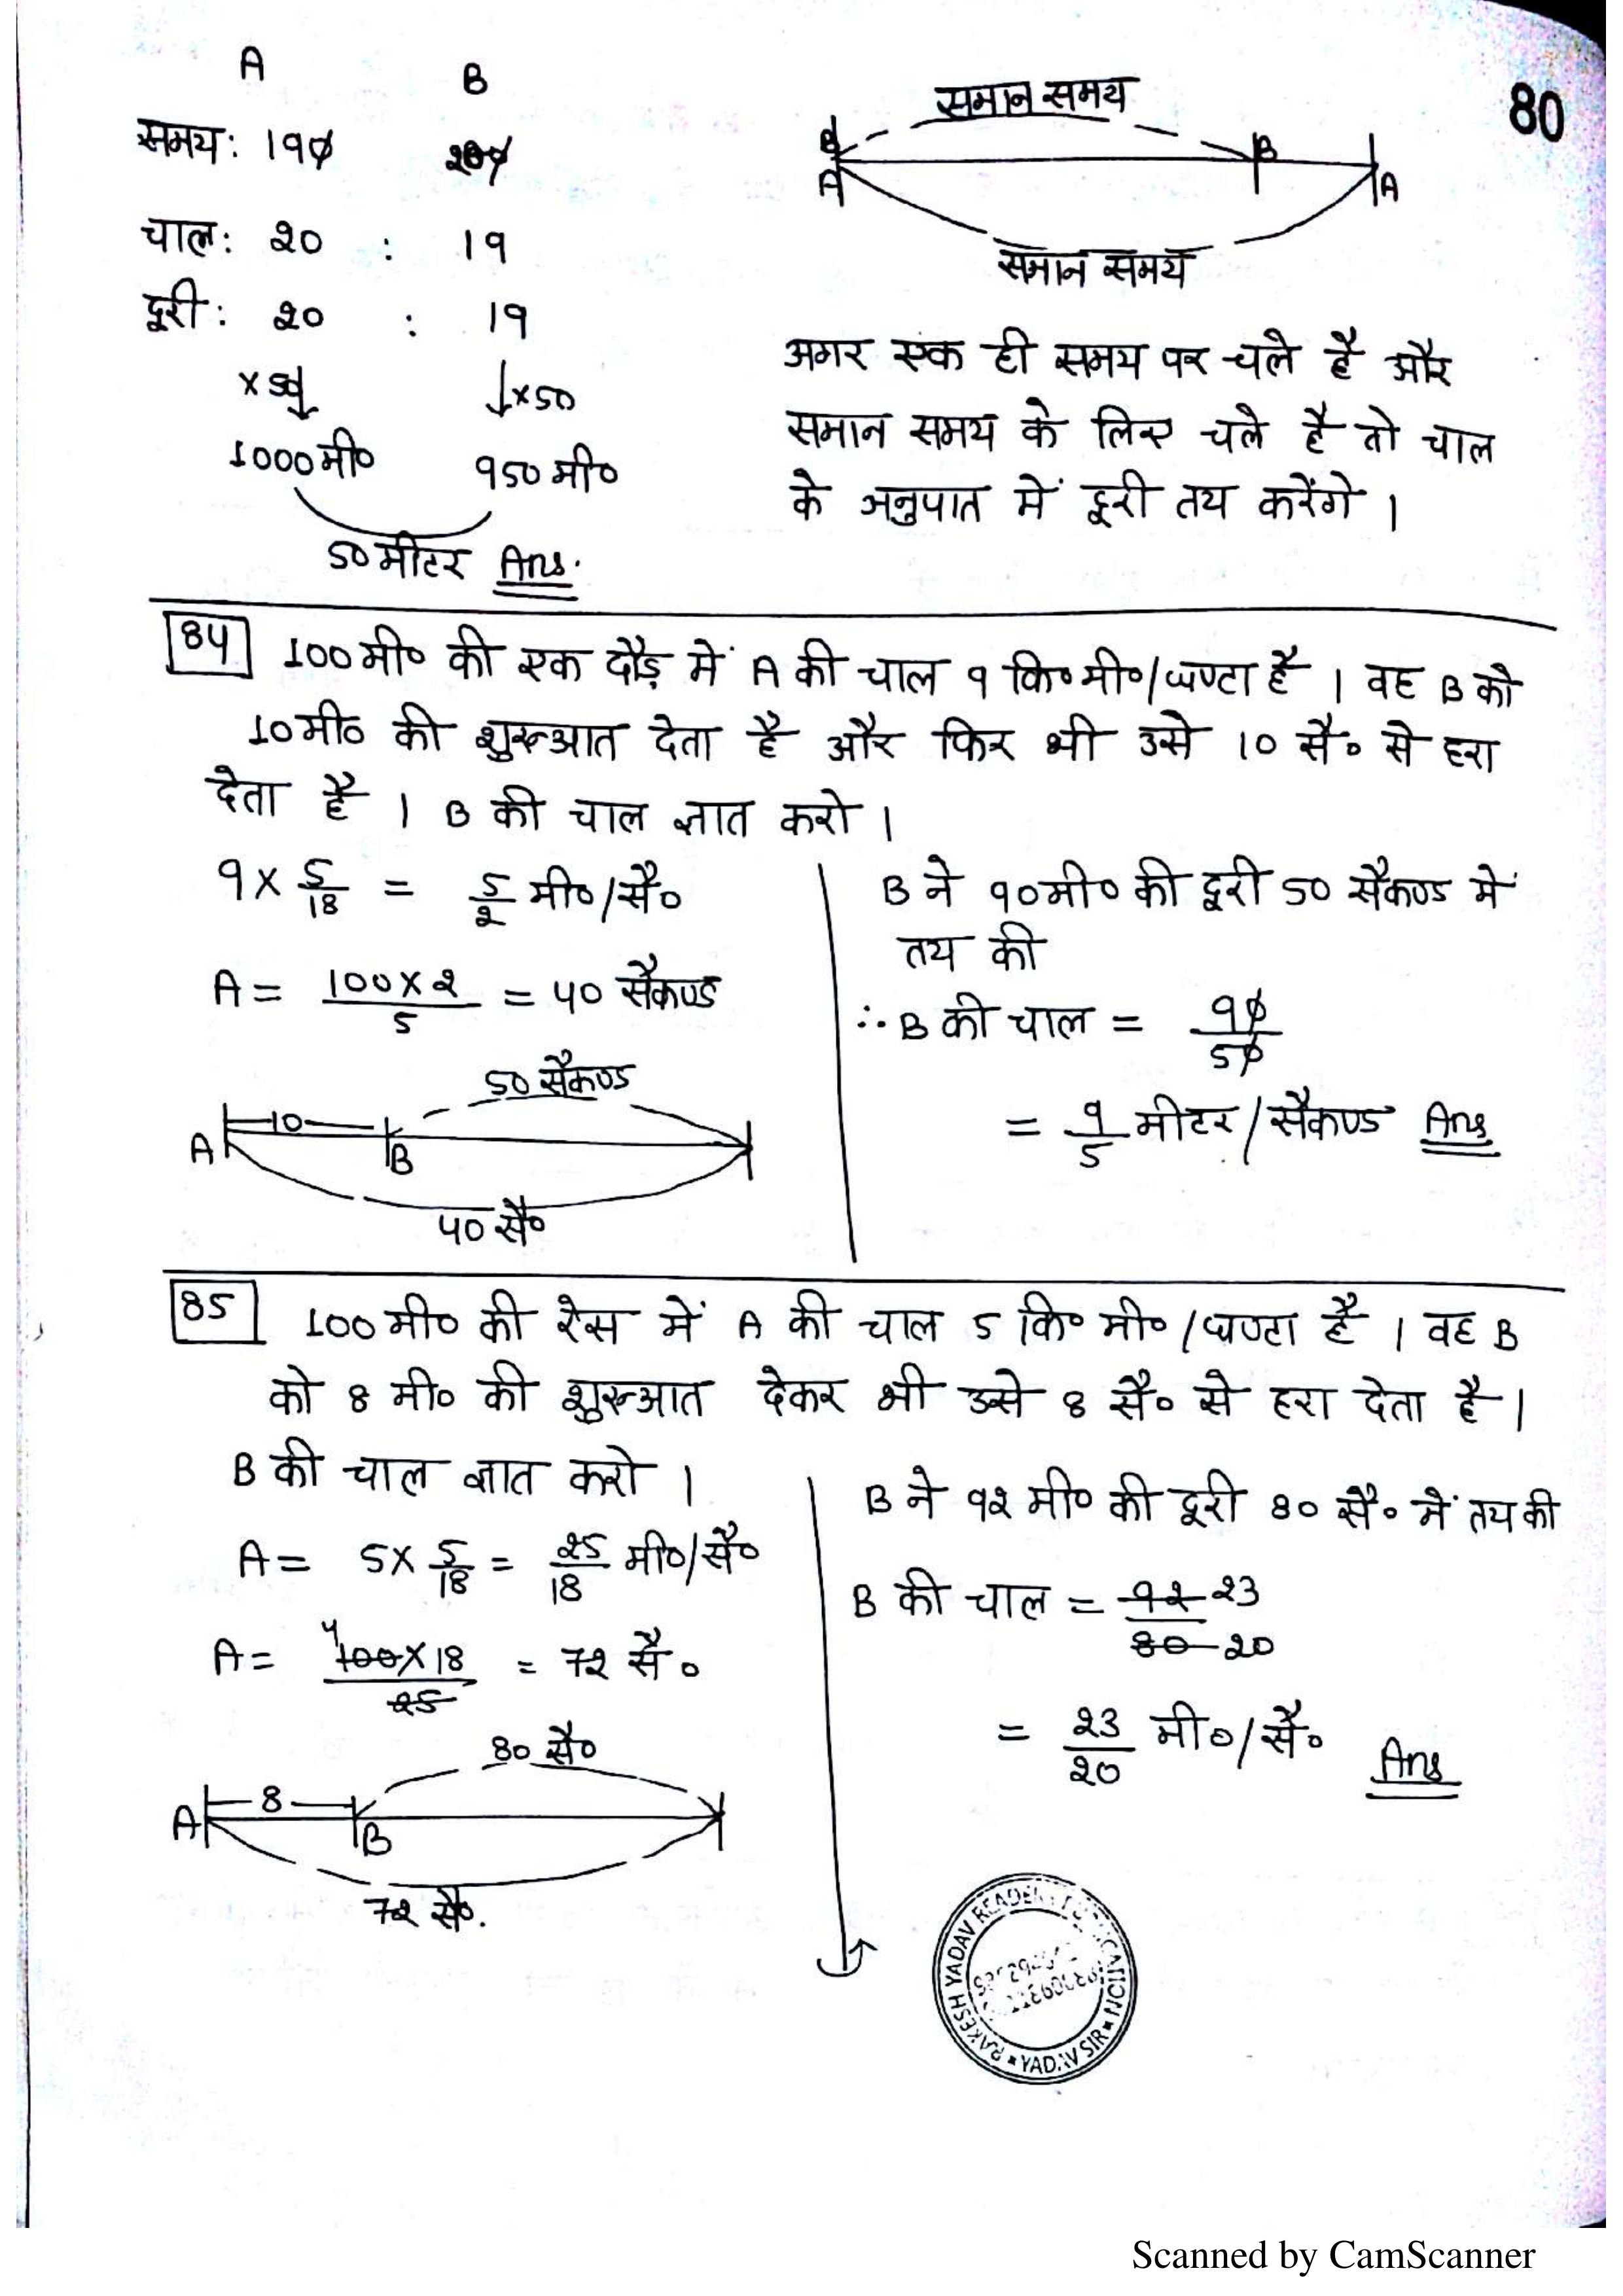 80
A B
समय: 190 200
चाल: 20 : 19
दूरी: 20 : 19
×50 ×50
1000मी० 950मी०
50मीटर Ans.
समान समय
B B
A A
समान समय
अगर एक ही समय पर चले है और
समान समय के लिए चले है तो चाल
के अनुपात में दूरी तय करेंगे ।
84 100मी० की एक दौड़ में A की चाल 9 कि०मी०/घण्टा है । वह B को
10मी० की शुरूआत देता है और फिर भी उसे 10 सै० से हरा
देता है । B की चाल ज्ञात करो ।
9 × 5/18 = 5/2 मी०/सै०
A = 100×2/5 = 40 सैकण्ड
50 सैकण्ड
10
A B
40 सै०
B ने 90मी० की दूरी 50 सैकण्ड में
तय की
∴ B की चाल = 90/50
= 9/5 मीटर/सैकण्ड Ans
85 100मी० की रेस में A की चाल 5 कि० मी०/घण्टा है । वह B
को 8 मी० की शुरूआत देकर भी उसे 8 सै० से हरा देता है ।
B की चाल ज्ञात करो ।
A = 5× 5/18 = 25/18 मी०/सै०
A = 4 100×18/25 = 72 सै०
80 सै०
8
A B
72 सै०.
B ने 92 मी० की दूरी 80 सै० में तय की
B की चाल = 92 23/80 20
= 23/20 मी०/सै० Ans
RAKESH YADAV READERS PUBLICATION
YADAV SIR
Scanned by CamScanner